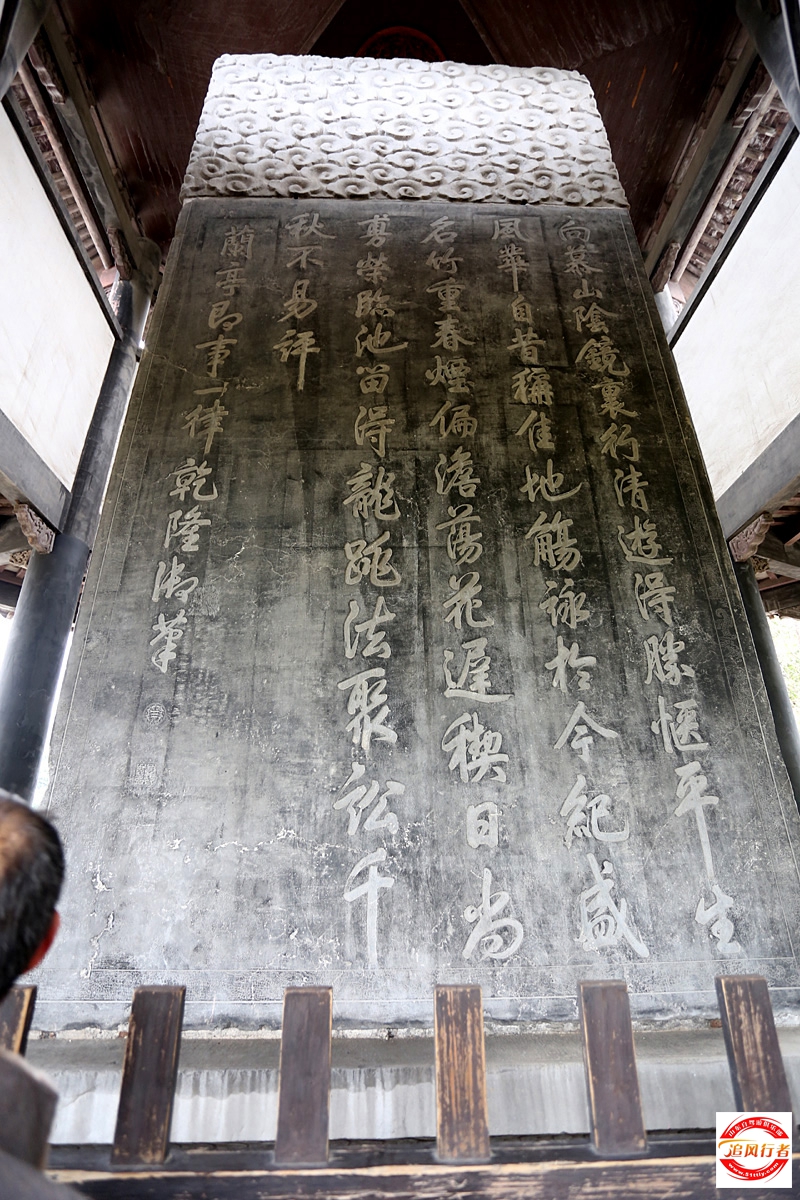 向慕山陰鏡裏行清遊得勝愜平生
風華自昔稱佳地觴詠於今紀盛
名竹重春煙偏澹蕩花遲禊日尚
剪榮臨池留得龍跳法聚訟千
秋不易評
蘭亭即事一律乾隆御筆
追风行者